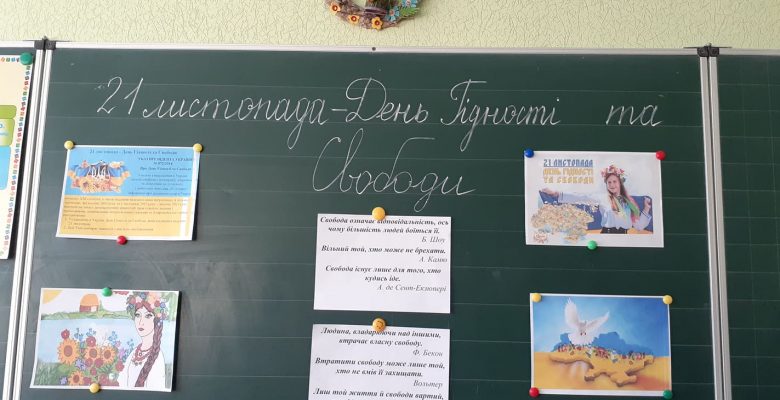 21 листопада – День Гідності та
Свободи
21 листопада - День Гідності та Свободи
УКАЗ ПРЕЗИДЕНТА УКРАЇНИ
Про День Гідності та Свободи
21 ЛИСТОПАДА
ДЕНЬ ГІДНОСТІ
ТА СВОБОДИ
Свобода означає відповідальність, ось
чому більшість людей боїться її.
Б. Шоу
Вільний той, хто може не брехати.
А. Камю
Свобода існує лише для того, хто
кудись іде.
А. де Сент-Екзюпері
Людина, владарюючи над іншими,
втрачає власну свободу.
Ф. Бекон
Втратити свободу може лише той,
хто не вміє її захищати.
Вольтер
Лиш той життя й свободи вартий,